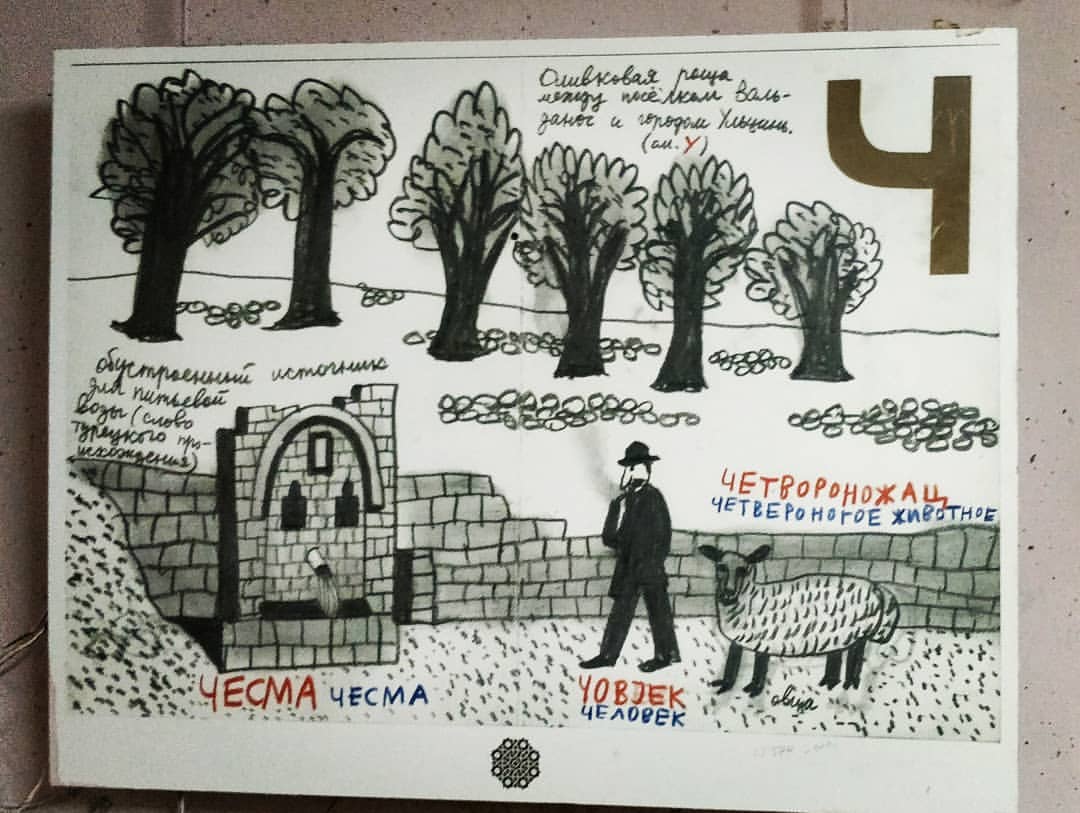 Оливковая роща
между посёлком Валь-
данос и городом Ульцинь.
(см. У)
Ч
обустроенный источник
для питьевой
воды (слово
турецкого про-
исхождения)
ЧЕТВОРОНОЖАЦ
ЧЕТВЕРОНОГОЕ ЖИВОТНОЕ
ЧЕСМА ЧЕСМА
ЧОВЈЕК
ЧЕЛОВЕК
овца